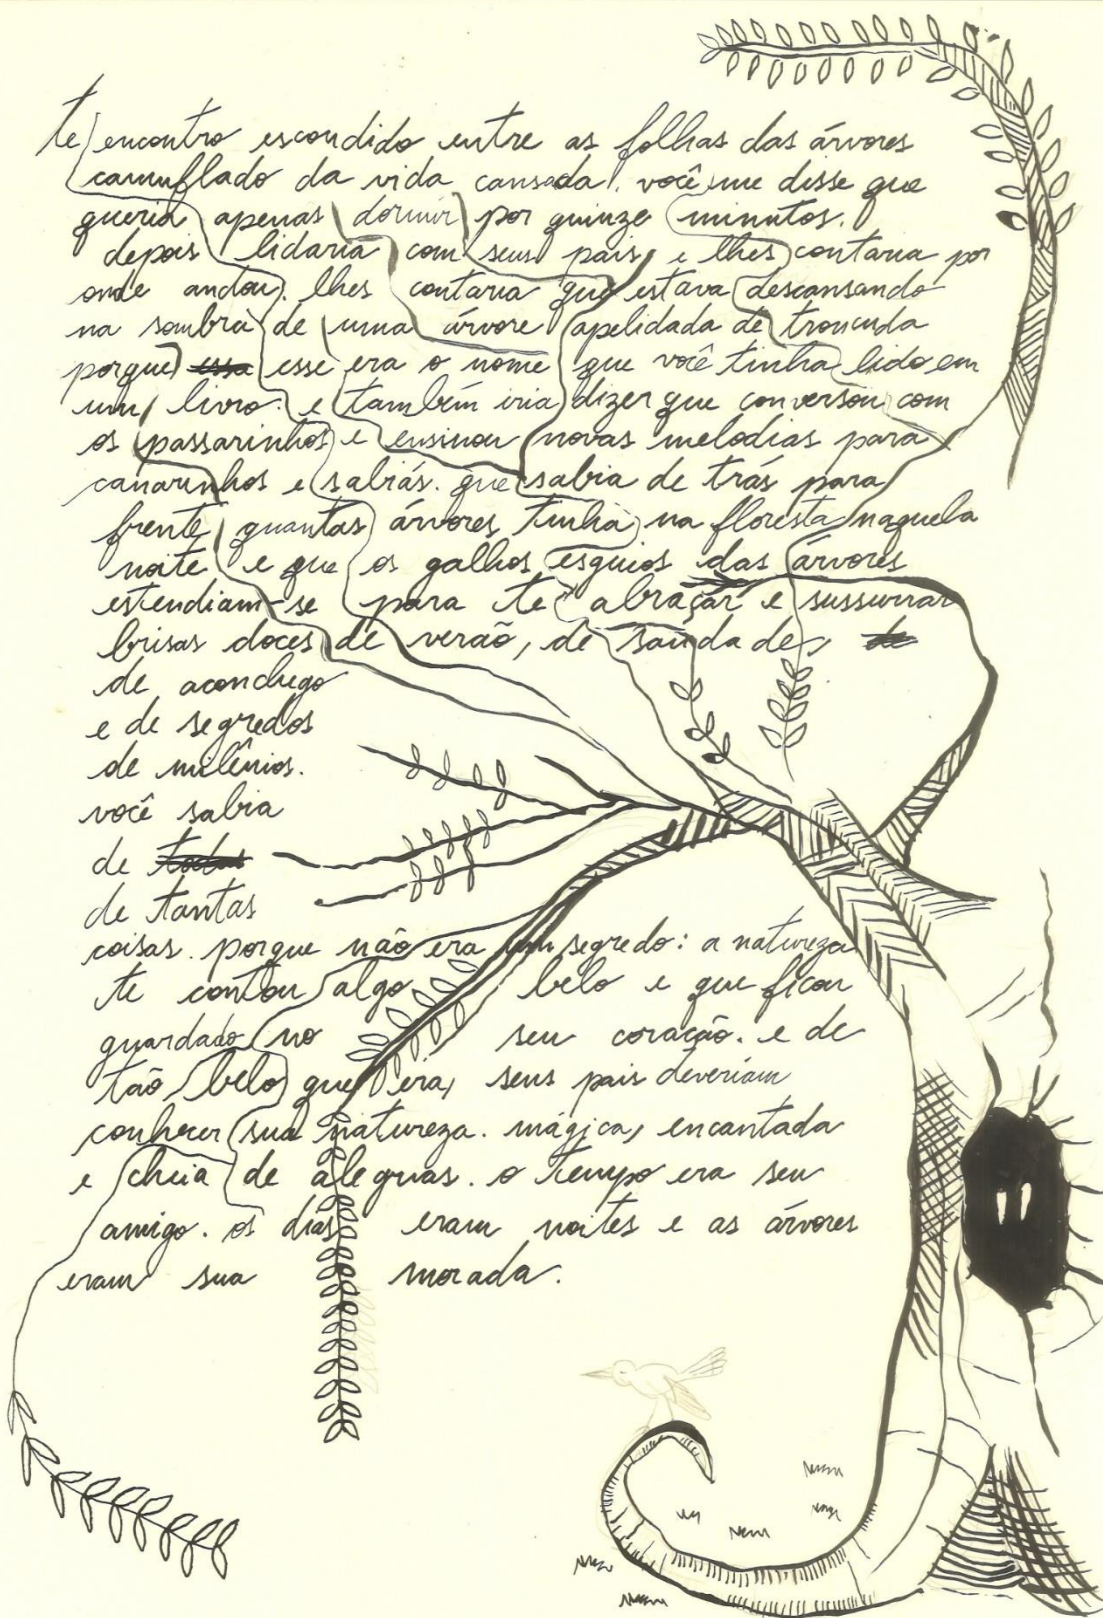 te encontro escondido entre as folhas das árvores
camuflado da vida cansada. você me disse que
queria apenas dormir por quinze minutos.
depois lidaria com seus pais e lhes contaria por
onde andou. lhes contaria que estava descansando
na sombra de uma árvore apelidada de troncuda
porque essa esse era o nome que você tinha lido em
um livro. e também iria dizer que conversou com
os passarinhos e ensinou novas melodias para
canarinhos e sabiás. que sabia de trás para
frente quantas árvores tinha na floresta naquela
noite e que os galhos esguios das árvores
estendiam-se para te abraçar e sussurrar
brisas doces de verão, de saudade, de
de aconchego
e de segredos
de milênios.
você sabia
de todas
de tantas
coisas. porque não era um segredo: a natureza
te contou algo belo e que ficou
guardado no seu coração. e de
tão belo que era, seus pais deveriam
conhecer sua natureza. mágica, encantada
e cheia de alegrias. o tempo era seu
amigo. os dias eram noites e as árvores
eram sua morada.